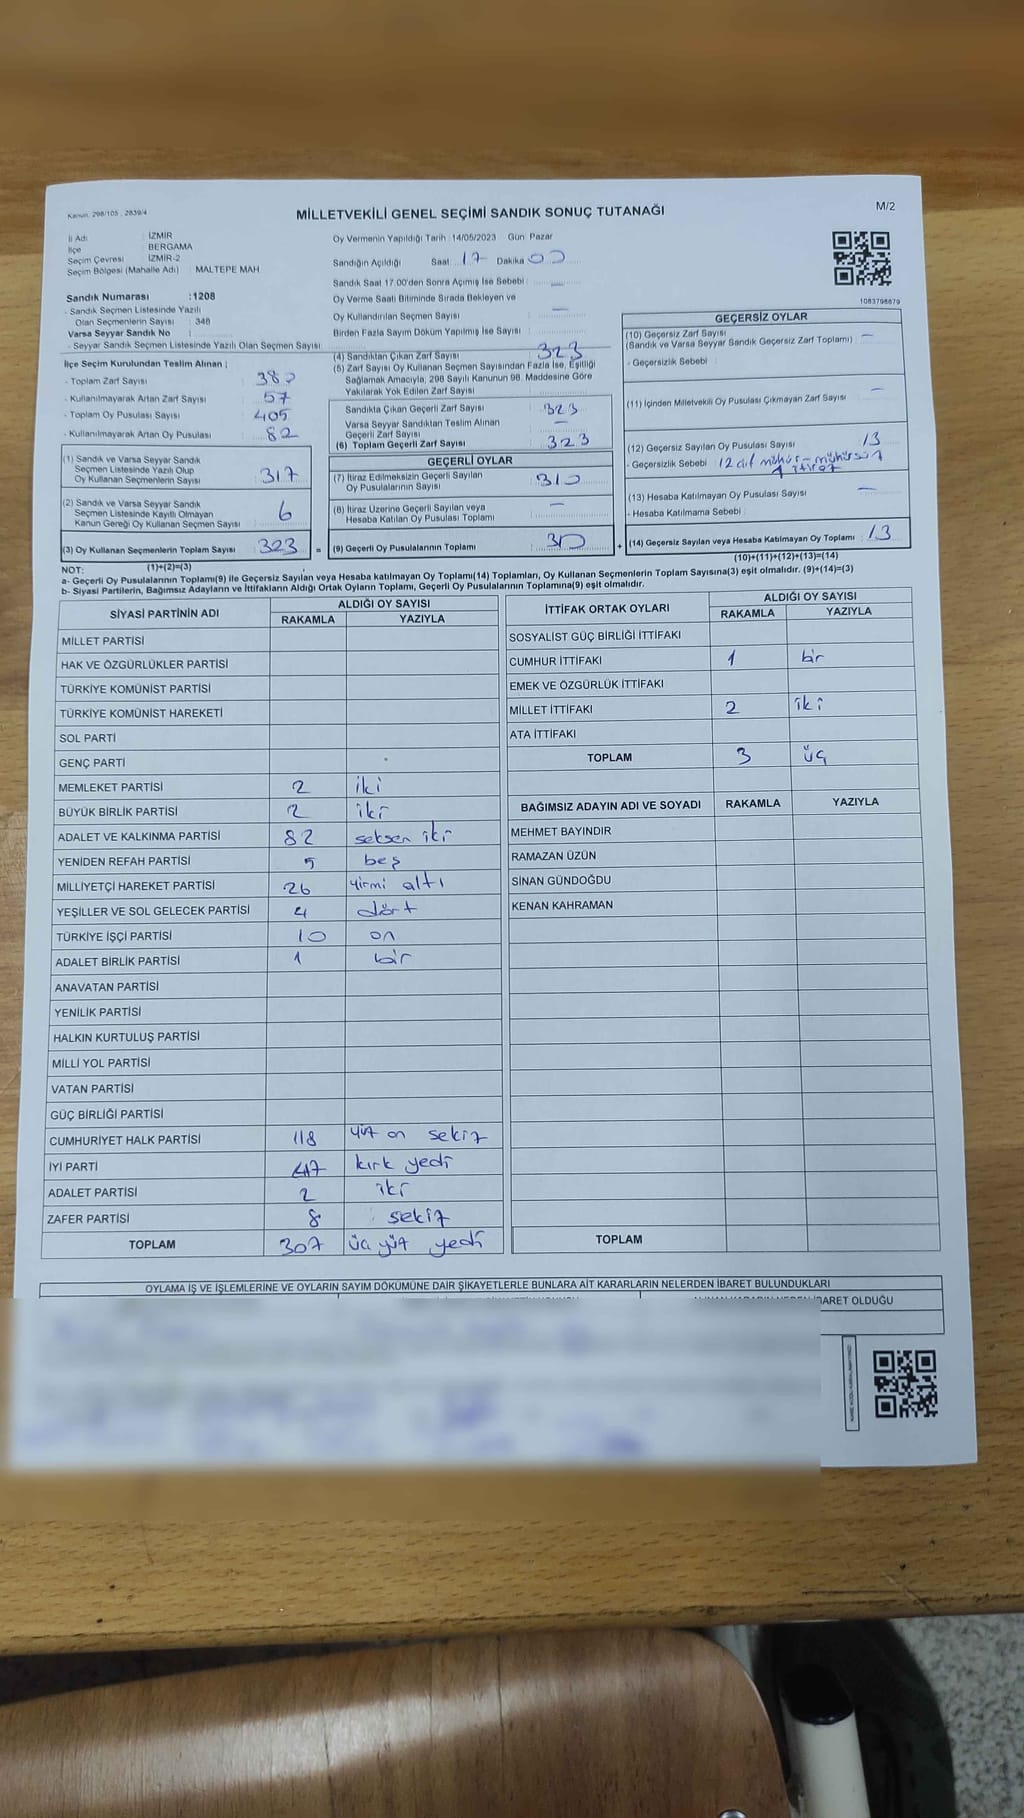 Kanun: 298/105 , 2839/4
MİLLETVEKİLİ GENEL SEÇİMİ SANDIK SONUÇ TUTANAĞI
M/2
İl Adı : İZMİR
İlçe : BERGAMA
Seçim Çevresi : İZMİR-2
Seçim Bölgesi (Mahalle Adı) : MALTEPE MAH
Oy Vermenin Yapıldığı Tarih : 14/05/2023 Gün: Pazar
Sandığın Açıldığı Saat : 17 Dakika 00
Sandık Saat 17.00'den Sonra Açımış İse Sebebi : —
Oy Verme Saati Bitiminde Sırada Bekleyen ve
Oy Kullandırılan Seçmen Sayısı : —
Birden Fazla Sayım Döküm Yapılmış İse Sayısı :
1083798879
Sandık Numarası :1208
- Sandık Seçmen Listesinde Yazılı
Olan Seçmenlerin Sayısı : 348
Varsa Seyyar Sandık No :
- Seyyar Sandık Seçmen Listesinde Yazılı Olan Seçmen Sayısı :
İlçe Seçim Kurulundan Teslim Alınan ;
- Toplam Zarf Sayısı : 380
- Kullanılmayarak Artan Zarf Sayısı : 57
- Toplam Oy Pusulası Sayısı : 405
- Kullanılmayarak Artan Oy Pusulası : 82
(1) Sandık ve Varsa Seyyar Sandık
Seçmen Listesinde Yazılı Olup
Oy Kullanan Seçmenlerin Sayısı : 317
(2) Sandık ve Varsa Seyyar Sandık
Seçmen Listesinde Kayıtlı Olmayan
Kanun Gereği Oy Kullanan Seçmen Sayısı : 6
(3) Oy Kullanan Seçmenlerin Toplam Sayısı : 323 =
(1)+(2)=(3)
(4) Sandıktan Çıkan Zarf Sayısı : 323
(5) Zarf Sayısı Oy Kullanan Seçmen Sayısından Fazla İse, Eşitliği
Sağlamak Amacıyla, 298 Sayılı Kanunun 98. Maddesine Göre
Yakılarak Yok Edilen Zarf Sayısı :
Sandıkta Çıkan Geçerli Zarf Sayısı : 323
Varsa Seyyar Sandıktan Teslim Alınan
Geçerli Zarf Sayısı : —
(6) Toplam Geçerli Zarf Sayısı : 323
GEÇERLİ OYLAR
(7) İtiraz Edilmeksizin Geçerli Sayılan
Oy Pusulalarının Sayısı : 310
(8) İtiraz Üzerine Geçerli Sayılan veya
Hesaba Katılan Oy Pusulası Toplamı : —
(9) Geçerli Oy Pusulalarının Toplamı : 310 +
GEÇERSİZ OYLAR
(10) Geçersiz Zarf Sayısı
(Sandık ve Varsa Seyyar Sandık Geçersiz Zarf Toplamı) : —
- Geçersizlik Sebebi :
(11) İçinden Milletvekili Oy Pusulası Çıkmayan Zarf Sayısı : —
(12) Geçersiz Sayılan Oy Pusulası Sayısı : 13
- Geçersizlik Sebebi : 12 çift mühür - mühürsüz
1 itiraz
(13) Hesaba Katılmayan Oy Pusulası Sayısı : —
- Hesaba Katılmama Sebebi :
(14) Geçersiz Sayılan veya Hesaba Katılmayan Oy Toplamı : 13
(10)+(11)+(12)+(13)=(14)
NOT:
a- Geçerli Oy Pusulalarının Toplamı(9) ile Geçersiz Sayılan veya Hesaba katılmayan Oy Toplamı(14) Toplamları, Oy Kullanan Seçmenlerin Toplam Sayısına(3) eşit olmalıdır. (9)+(14)=(3)
b- Siyasi Partilerin, Bağımsız Adayların ve İttifakların Aldığı Ortak Oyların Toplamı, Geçerli Oy Pusulalarının Toplamına(9) eşit olmalıdır.
SİYASİ PARTİNİN ADI ALDIĞI OY SAYISI
RAKAMLA YAZIYLA
MİLLET PARTİSİ
HAK VE ÖZGÜRLÜKLER PARTİSİ
TÜRKİYE KOMÜNİST PARTİSİ
TÜRKİYE KOMÜNİST HAREKETİ
SOL PARTİ
GENÇ PARTİ
MEMLEKET PARTİSİ 2 iki
BÜYÜK BİRLİK PARTİSİ 2 iki
ADALET VE KALKINMA PARTİSİ 82 seksen iki
YENİDEN REFAH PARTİSİ 5 beş
MİLLİYETÇİ HAREKET PARTİSİ 26 yirmi altı
YEŞİLLER VE SOL GELECEK PARTİSİ 4 dört
TÜRKİYE İŞÇİ PARTİSİ 10 on
ADALET BİRLİK PARTİSİ 1 bir
ANAVATAN PARTİSİ
YENİLİK PARTİSİ
HALKIN KURTULUŞ PARTİSİ
MİLLİ YOL PARTİSİ
VATAN PARTİSİ
GÜÇ BİRLİĞİ PARTİSİ
CUMHURİYET HALK PARTİSİ 118 yüz on sekiz
İYİ PARTİ 47 kırk yedi
ADALET PARTİSİ 2 iki
ZAFER PARTİSİ 8 sekiz
TOPLAM 307 üç yüz yedi
İTTİFAK ORTAK OYLARI ALDIĞI OY SAYISI
RAKAMLA YAZIYLA
SOSYALİST GÜÇ BİRLİĞİ İTTİFAKI
CUMHUR İTTİFAKI 1 bir
EMEK VE ÖZGÜRLÜK İTTİFAKI
MİLLET İTTİFAKI 2 iki
ATA İTTİFAKI
TOPLAM 3 üç
BAĞIMSIZ ADAYIN ADI VE SOYADI RAKAMLA YAZIYLA
MEHMET BAYINDIR
RAMAZAN ÜZÜN
SİNAN GÜNDOĞDU
KENAN KAHRAMAN
TOPLAM
OYLAMA İŞ VE İŞLEMLERİNE VE OYLARIN SAYIM DÖKÜMÜNE DAİR ŞİKAYETLERLE BUNLARA AİT KARARLARIN NELERDEN İBARET BULUNDUKLARI
İBARET OLDUĞU